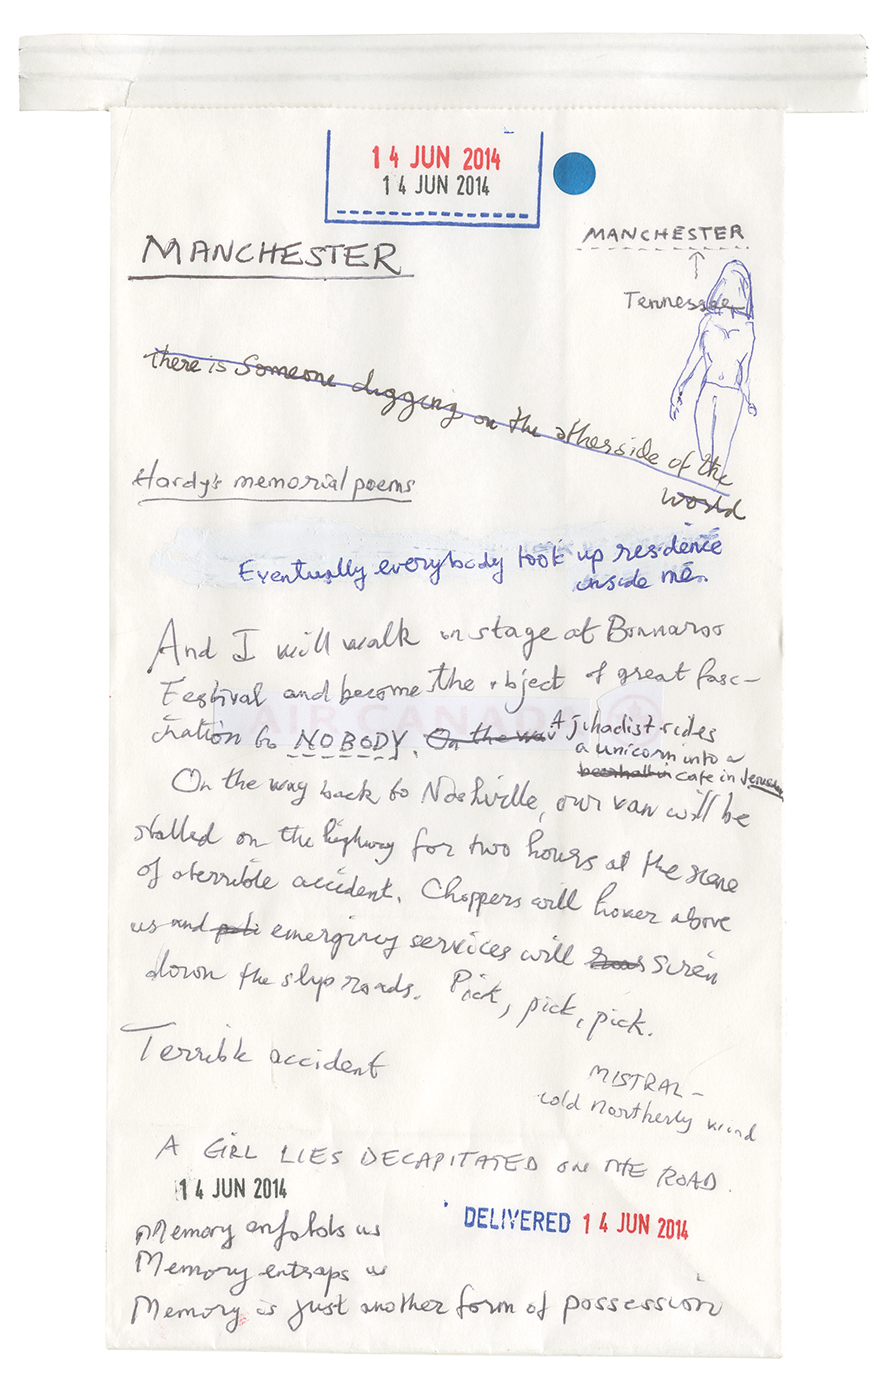 14 JUN 2014
14 JUN 2014
MANCHESTER
MANCHESTER
Tennessee
there is Someone digging on the otherside of the
world
Hardy's memorial poems
Eventually everybody took up residence
inside me.
And I will walk on stage at Bonnaroo
Festival and become the object of great fasc-
ination to NOBODY. On the way
A jihadist rides
a unicorn into a
cafe in Jerusalem
AIR CANADA
On the way back to Nashville, our van will be
stalled on the highway for two hours at the scene
of a terrible accident. Choppers will hover above
us and emergency services will siren
down the slip roads. Pick, pick, pick.
Terrible accident
MISTRAL -
cold Northerly wind
A GIRL LIES DECAPITATED ON THE ROAD.
14 JUN 2014
DELIVERED 14 JUN 2014
Memory enfolds us
Memory entraps us
Memory is just another form of possession